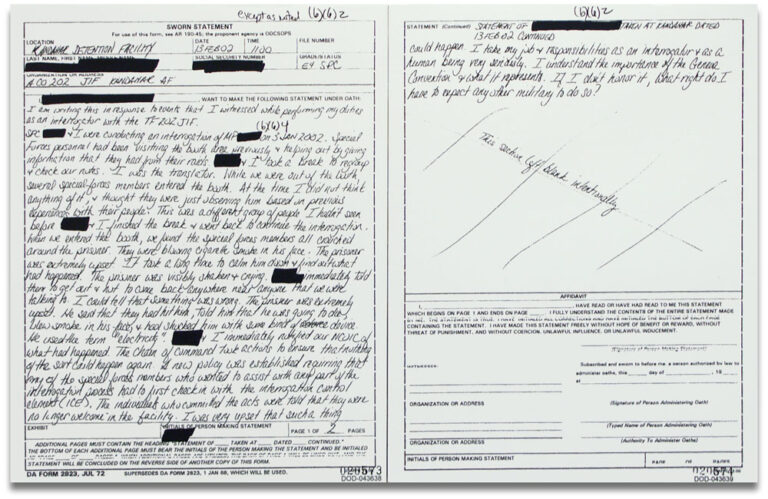 except as noted (b)(6)2
SWORN STATEMENT
For use of this form, see AR 190-45; the proponent agency is ODCSOPS
LOCATION
DATE
TIME
FILE NUMBER
KANDAHAR DETENTION FACILITY
13 FEB 02
1100
LAST NAME, FIRST NAME,
SOCIAL SECURITY NUMBER
GRADE/STATUS
E4 SPC
ORGANIZATION OR ADDRESS
A CO 202 JIF KANDAHAR AF
I,
, WANT TO MAKE THE FOLLOWING STATEMENT UNDER OATH:
I am writing this in response to events that I witnessed while performing my duties
as an interrogator with the TF 202 JIF.
(b)(6)4
SPC & I were conducting an interrogation of on 3 JAN 2002. Special
Forces personnel had been visiting the booth area previously & helping out by giving
information that they had from their raids. & I took a break to regroup
& check our notes. I was the translator. While we were out of the booth,
several special forces members entered the booth. At the time I did not think
anything of it, & thought they were just observing him based on previous
experiences with their people. This was a different group of people I hadn't seen
before. & I finished the break & went back to continue the interrogation.
When we entered the booth, we found the special forces members all crouched
around the prisoner. They were blowing cigarette smoke in his face. The prisoner
was extremely upset. It took a long time to calm him down & find out what
had happened. The prisoner was visibly shaken & crying. immediately told
them to get out & not to come back anywhere near anyone that we were
talking to. I could tell that something was wrong. The prisoner was extremely
upset. He said that they had hit him, told him that he was going to die,
blew smoke in his face, & had shocked him with some kind of device.
He used the term "electricity". & I immediately notified our NCOIC of
what had happened. The chain of command took actions to ensure that nothing
of the sort could happen again. A new policy was established requiring that
any of the special forces members who wanted to assist with any part of the
interrogation process had to first check in with the interrogation control
element (ICE). The individuals who committed the acts were told that they were
no longer welcome in the facility. I was very upset that such a thing
EXHIBIT
INITIALS OF PERSON MAKING STATEMENT
PAGE 1 OF 2 PAGES
ADDITIONAL PAGES MUST CONTAIN THE HEADING "STATEMENT OF TAKEN AT DATED CONTINUED."
THE BOTTOM OF EACH ADDITIONAL PAGE MUST BEAR THE INITIALS OF THE PERSON MAKING THE STATEMENT AND BE INITIALED
STATEMENT WILL BE CONCLUDED ON THE REVERSE SIDE OF ANOTHER COPY OF THIS FORM.
DA FORM 2823, JUL 72
SUPERSEDES DA FORM 2823, 1 JAN 68, WHICH WILL BE USED.
020573
DOD-043638
(b)(6)2
STATEMENT (Continued) STATEMENT OF TAKEN AT KANDAHAR DATED
13 FEB 02 CONTINUED
could happen. I take my job & responsibilities as an interrogator & as a
human being very seriously. I understand the importance of the Geneva
Convention & what it represents. If I don't honor it, what right do I
have to expect any other military to do so?
This section left blank intentionally
AFFIDAVIT
I, , HAVE READ OR HAVE HAD READ TO ME THIS STATEMENT
WHICH BEGINS ON PAGE 1 AND ENDS ON PAGE . I FULLY UNDERSTAND THE CONTENTS OF THE ENTIRE STATEMENT MADE
CONTAINING THE STATEMENT. I HAVE MADE THIS STATEMENT FREELY WITHOUT HOPE OF BENEFIT OR REWARD, WITHOUT
THREAT OF PUNISHMENT, AND WITHOUT COERCION, UNLAWFUL INFLUENCE, OR UNLAWFUL INDUCEMENT.
(Signature of Person Making Statement)
WITNESSES:
Subscribed and sworn to before me, a person authorized by law to
administer oaths, this day of , 19
at
ORGANIZATION OR ADDRESS
(Signature of Person Administering Oath)
(Typed Name of Person Administering Oath)
ORGANIZATION OR ADDRESS
(Authority To Administer Oaths)
INITIALS OF PERSON MAKING STATEMENT
PAGE OF PAGES
DOD-043639